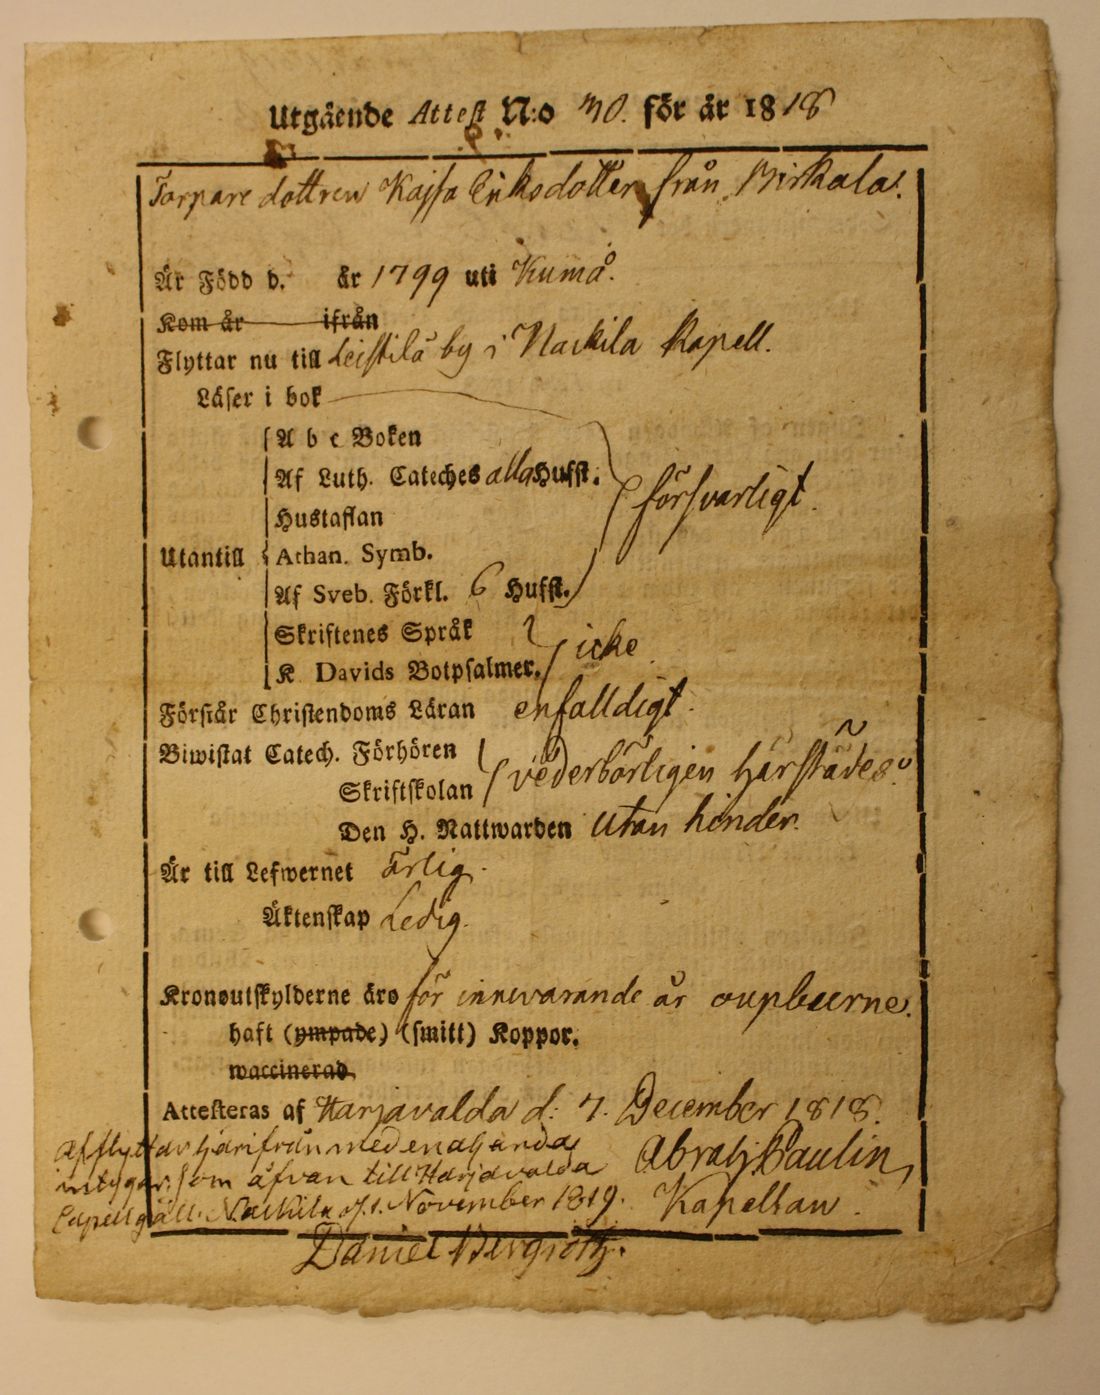 Utgående Attest N:o 30. för år 1818
Torpare dottren Kajsa Eriksdotter från Pirkala.
Är Född d. år 1799 uti Kumå.
Kom år ifrån
Flyttar nu till Leistilä by i Nackila Kapell.
Läser i bok
A b c Boken
Af Luth. Cateches alla Hufst.
Hustaflan
försvarligt.
Utantill
Athan. Symb.
Af Sveb. Förkl. 6 Hufst.
Skriftenes Språk
K Davids Botpsalmer.
icke
Förstår Christendoms Läran enfalldigt.
Biwistat Catech. Förhören
Skriftskolan
vederbörligen härstädes.
Den H. Nattwarden utan hinder.
Är till Lefwernet ärlig.
Äktenskap Ledig.
Kronoutskylderne äro för innevarande år oupburne.
haft (ympade) (smitt) Koppor.
waccinerad
Attesteras af Harjavalda d: 7. December 1818.
Abrah: Paulin,
Kapellan.
Afflyttar härifrån med enahanda
intygan, som ofvan till Harjavalda
Capellgäll. Nackila d. 1. November 1819.
Daniel Bergroth.